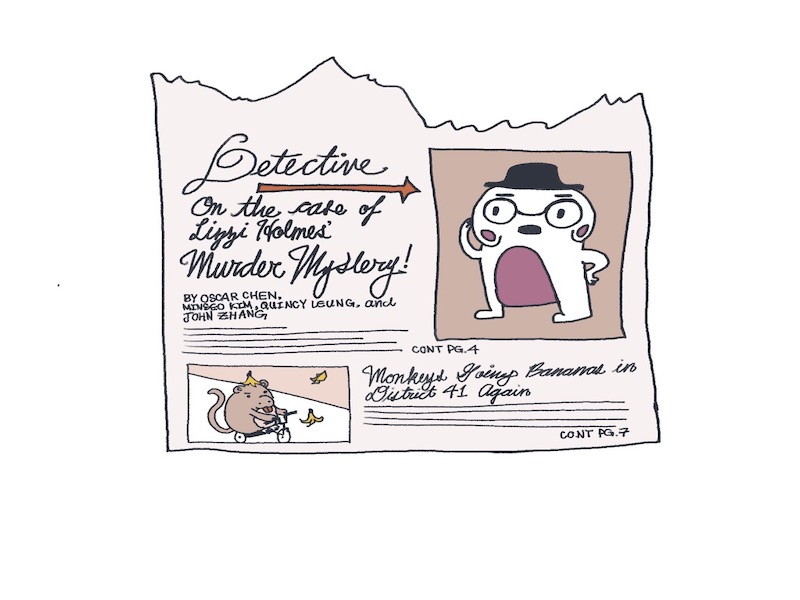 Detective
On the case of
Lizzi Holmes'
Murder Mystery!
BY OSCAR CHEN,
MINSEO KIM, QUINCY LEUNG, and
JOHN ZHANG
CONT PG. 4
Monkeys Going Bananas in
District 41 Again
CONT PG. 7